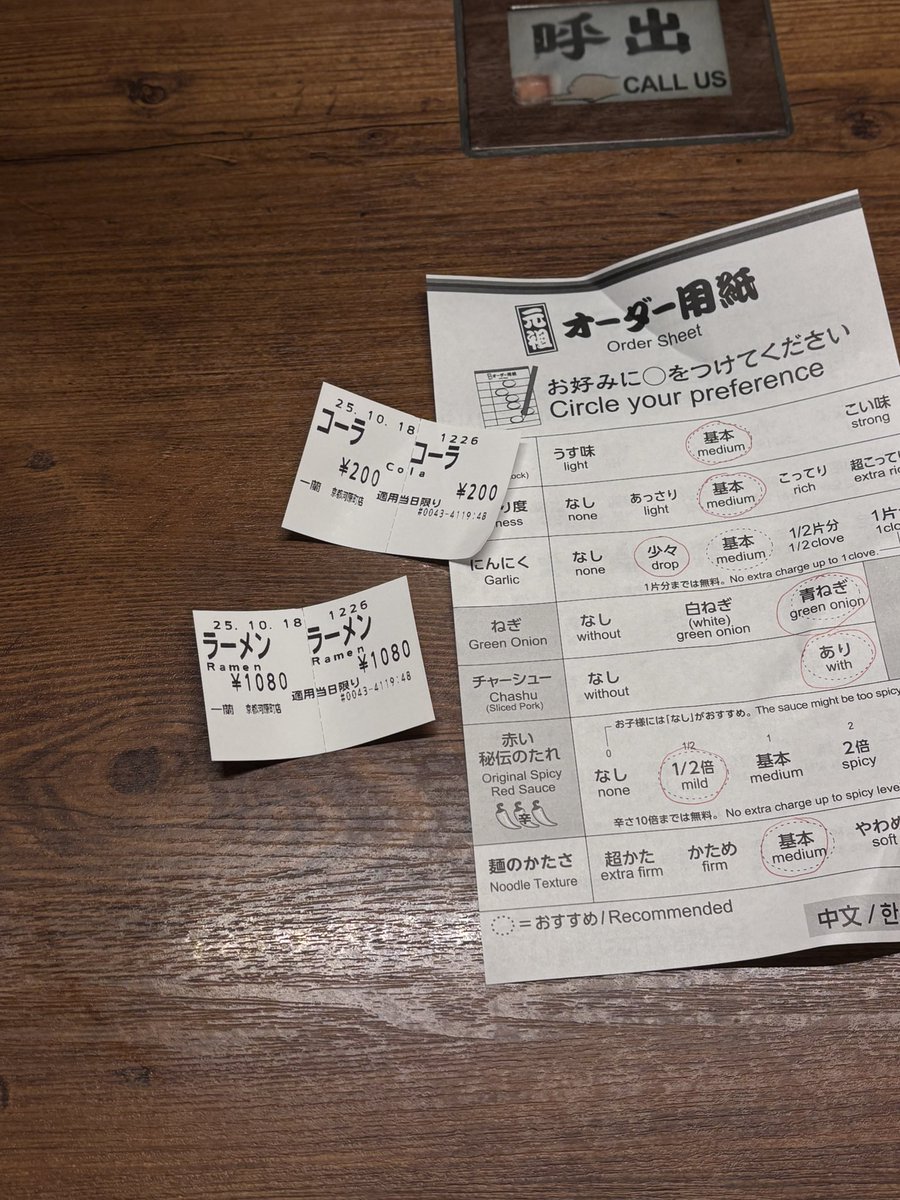 呼出
CALL US
元祖
オーダー用紙
Order Sheet
オーダー用紙
お好みに○をつけてください
Circle your preference
うす味 基本 こい味
light medium strong
なし あっさり 基本 こってり 超こってり
none light medium rich extra
にんにく なし 少々 基本 1/2片分 1片
Garlic none drop medium 1/2clove
1片分までは無料。No extra charge up to 1clove.
ねぎ なし 白ねぎ 青ねぎ
Green Onion without (white) green onion
green onion
チャーシュー なし あり
Chashu without with
(Sliced Pork)
お子様には「なし」がおすすめ。The sauce might be too spicy
赤い
秘伝のたれ
Original Spicy
Red Sauce
辛
0 1/2 1 2
なし 1/2倍 基本 2倍
none mild medium spicy
辛さ10倍までは無料。No extra charge up to spicy
麺のかたさ 超かた かため 基本 やわめ
Noodle Texture extra firm firm medium soft
=おすすめ/Recommended
中文/한
25.10.18 1226
コーラ コーラ
Cola
¥200 ¥200
一蘭 京都河原町店 適用当日限り
#0043-4119:48
25.10.18 1226
ラーメン ラーメン
Ramen Ramen
¥1080 ¥1080
一蘭 京都河原町店 適用当日限り
#0043-4119:48